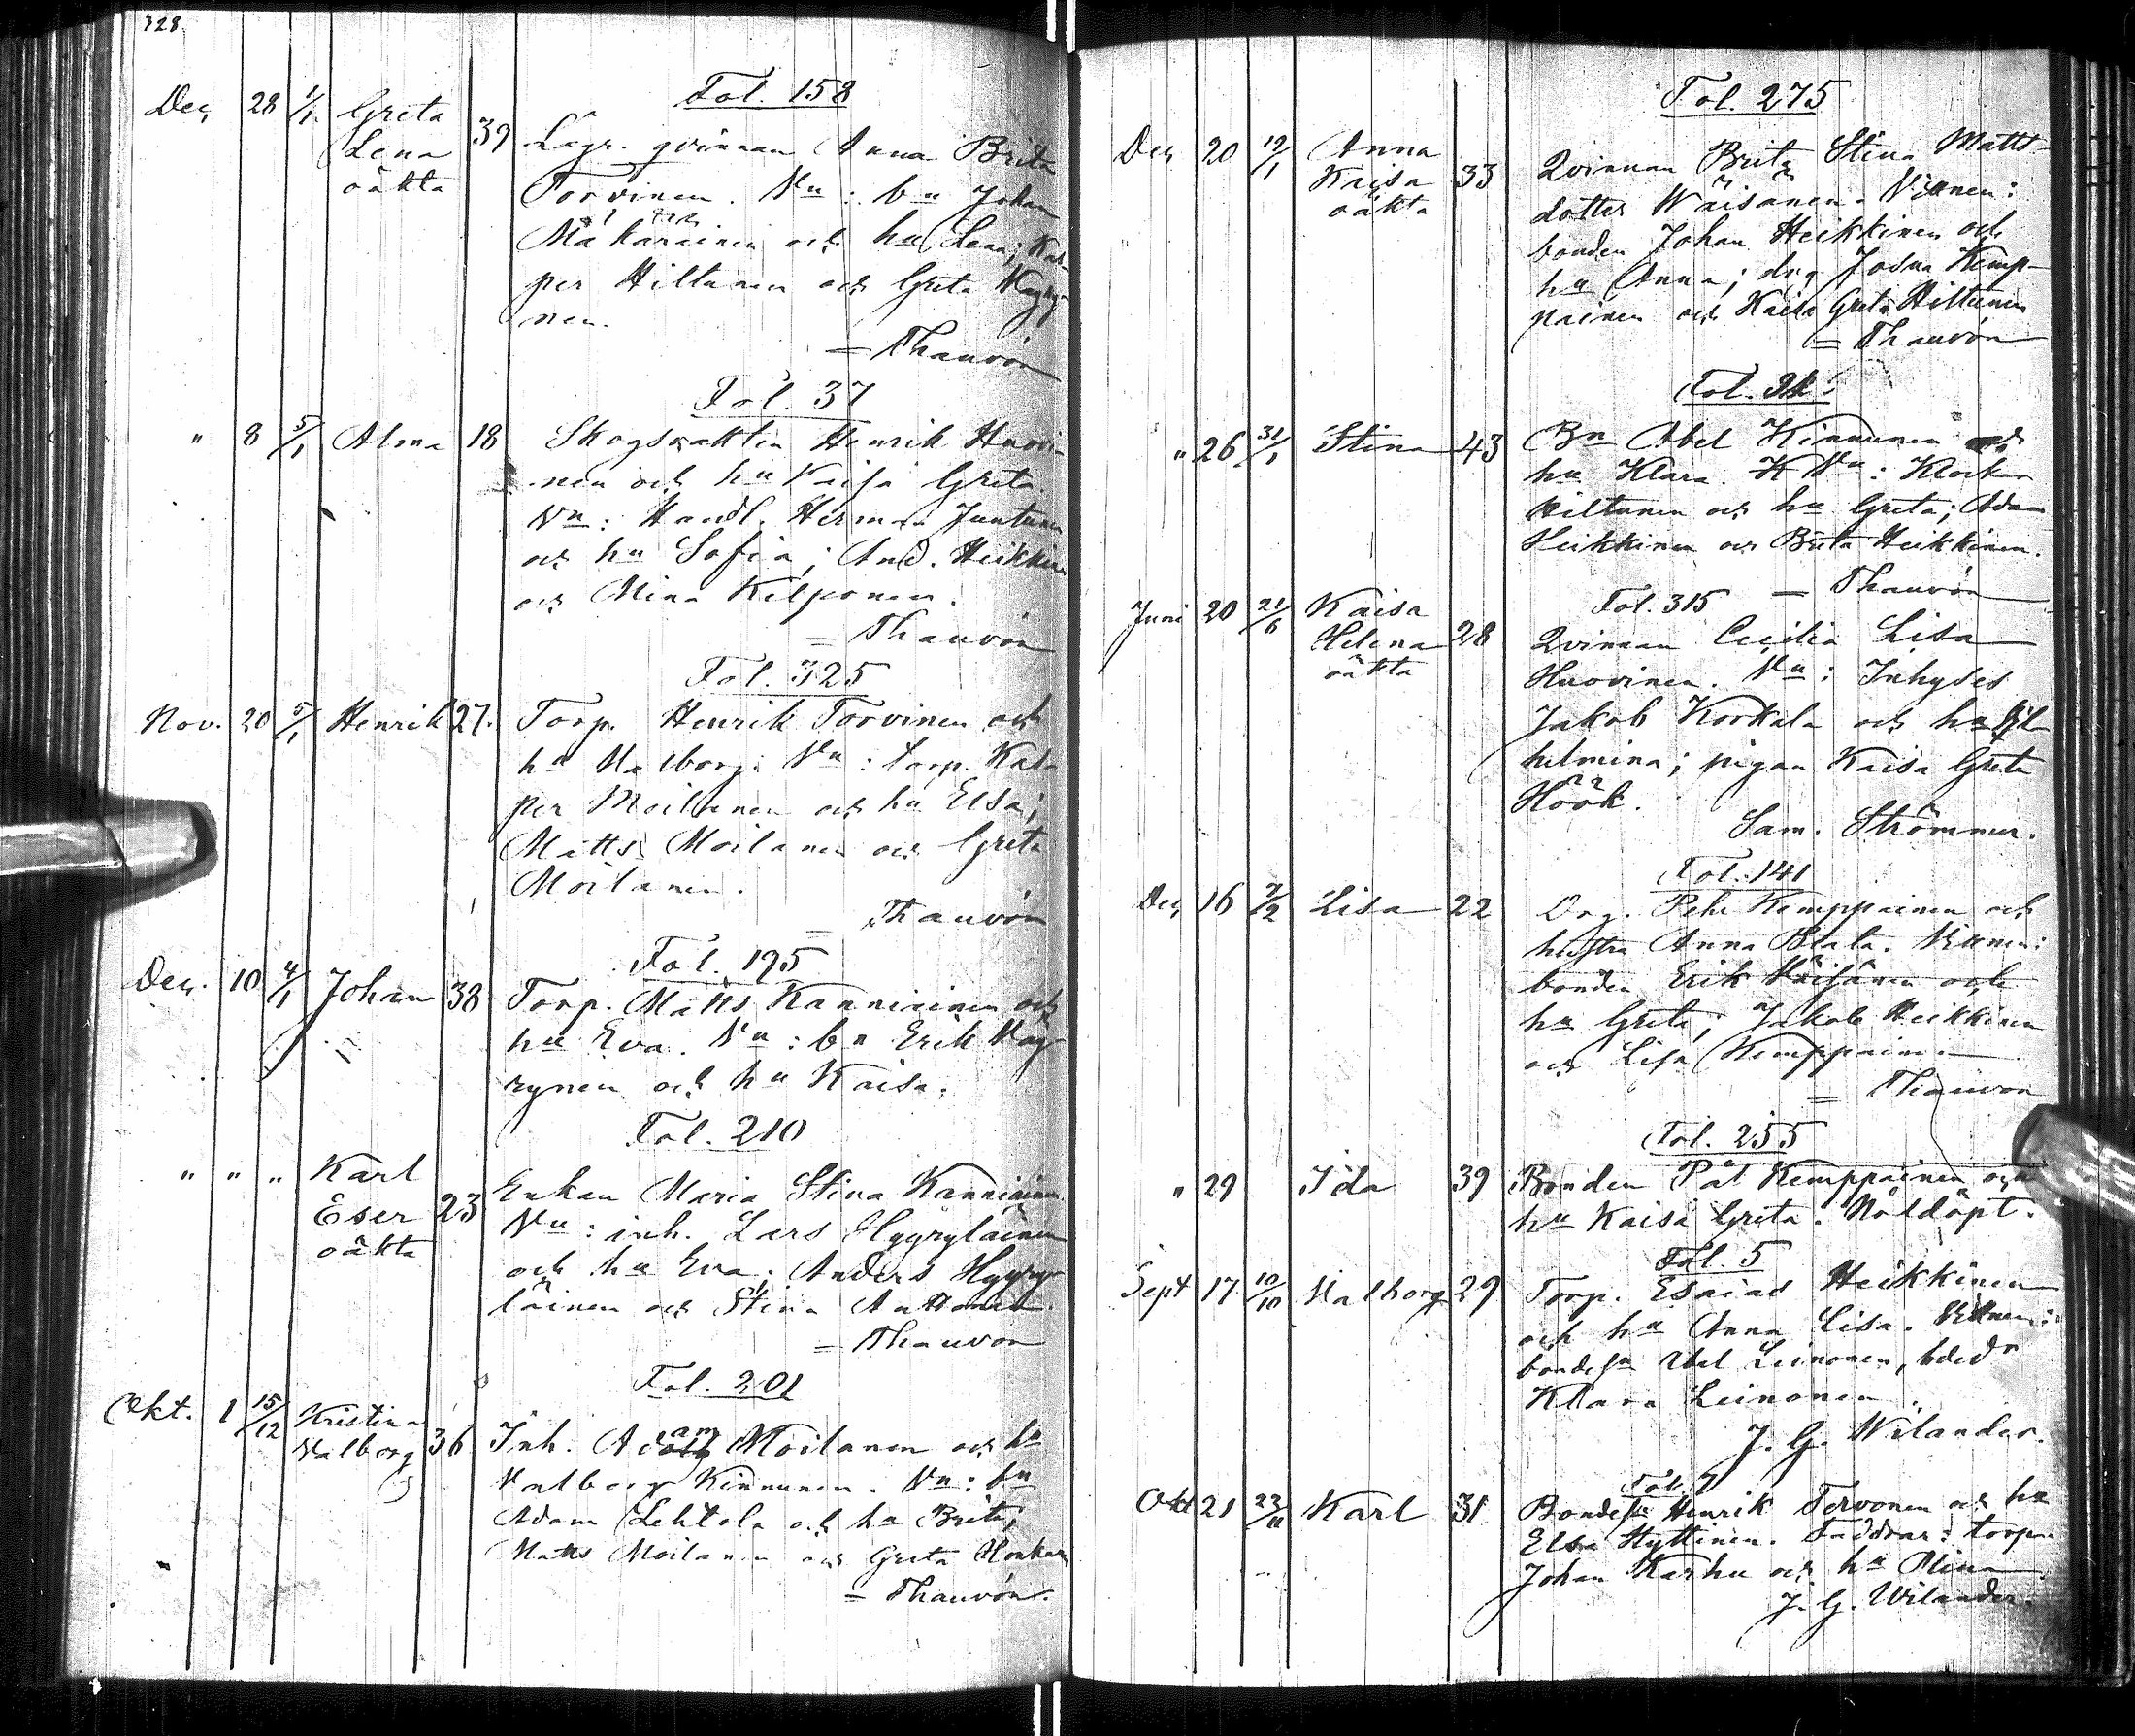 328.
Fol. 158
Dec. 28 1/1. Greta
Lena 39 Lägr. qvinnan Anna Brita
oäkta Torvinen. Vn: bn Johan
Mäkäräinen och hu Lena; Kas-
per Hiltunen och Greta
nen.
= Thauvón
Fol. 37
" 8 5/1 Alma 18 Skogsvakten Henrik Huovi-
nen och hu Kaisa Greta.
Vn: Handl. Herman Juntunen
och hu Sofia; And. Heikkinen
och Mina Kilponen.
= Thauvón
Fol. 325
Nov. 20 5/1 Henrik 27. Torp. Henrik Torvinen och
hu Valborg. Vn: torp. Kas-
per Moilanen och hu Elsa;
Matts Moilanen och Greta
Moilanen.
= Thauvón
Fol. 195
Dec. 10 4/1 Johan 38 Torp. Matts Kanniainen och
hu Eva. Vn: bn Erik Väy-
rynen och hu Kaisa.
Fol. 210
" " " Karl
Eser 23 Enkan Maria Stina Kanniainen.
oäkta Vn: inh. Lars Hyyryläinen
och hu Eva; Anders Hyyry-
läinen och Stina
= Thauvón
Fol. 201
Okt. 1 15/12 Kristina
Valborg 36 Inh. Adam Moilanen och hu
Valborg Kinnunen. Vn: bn
Adam Lehtola och hu Brita;
Matts Moilanen och Greta
= Thauvón.
Fol. 275
Dec 20 19/1 Anna
Kaisa 33 Qvinnan Brita Stina Matts-
oäkta dotter Wäisänen. Vittnen:
bonden Johan Heikkinen och
hu Anna; drg. Josua Kemp-
painen och Kaisa Greta Hiltunen
= Thauvón
Fol.
" 26 31/1 Stina 43 Bn Abel Kinnunen och
hu Klara. Vn: Klockar
Hiltunen och hu Greta; Adam
Heikkinen och Brita Heikkinen.
= Thauvón
Fol. 315
Juni 20 21/6 Kaisa
Helena 28 Qvinnan Cecilia Lisa
oäkta Huovinen. Vn: Inhyses
Jakob Korkala och hu Vil-
helmina; pigan Kaisa Greta
Höök.
Sam. Strömmer.
Fol. 141
Dec 16 2/2 Lisa 22 Drg. Pehr Kemppainen och
hustru Anna Beata. Vittnen:
bonden Erik Väisänen och
hu Greta; Jakob Heikkinen
och Lisa Kemppainen
= Thauvón
Fol. 255
" 29 Ida 39 Bonden Pål Kemppainen och
hu Kaisa Greta. Nöldöpt.
Fol. 5
Sept 17 10/10 Valborg 29 Torp. Esaias Heikkinen
och hu Anna Lisa. Vittnen:
bondesn Abel Leinonen,
Klara Leinonen.
J. G. Wilander.
Fol. 7
Okt 21 23/11 Karl 31 Bondesn Henrik Tervonen och hu
Elsa Hyttinen. Faddrar: torpn
Johan Karhu och hu Mina
J. G. Wilander.